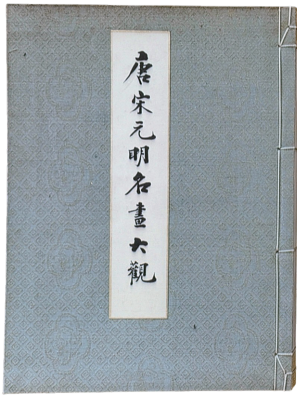 唐宋元明名畫大觀